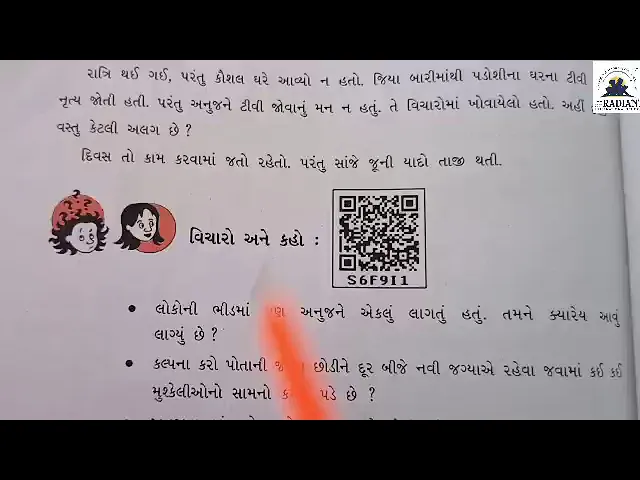 રાત્રિ થઈ ગઈ, પરંતુ કૌશલ ઘરે આવ્યો ન હતો. જિયા બારીમાંથી પડોશીના ઘરના ટીવી
નૃત્ય જોતી હતી. પરંતુ અનુજને ટીવી જોવાનું મન ન હતું. તે વિચારોમાં ખોવાયેલો હતો. અહીં
વસ્તુ કેટલી અલગ છે ?
દિવસ તો કામ કરવામાં જતો રહેતો. પરંતુ સાંજે જૂની યાદો તાજી થતી.
વિચારો અને કહો :
S6F9I1
• લોકોની ભીડમાં અનુજને એકલું લાગતું હતું. તમને ક્યારેય આવું
લાગ્યું છે ?
• કલ્પના કરો પોતાની છોડીને દૂર બીજે નવી જગ્યાએ રહેવા જવામાં કઈ કઈ
મુશ્કેલીઓનો સામનો પડે છે ?
RADIAN